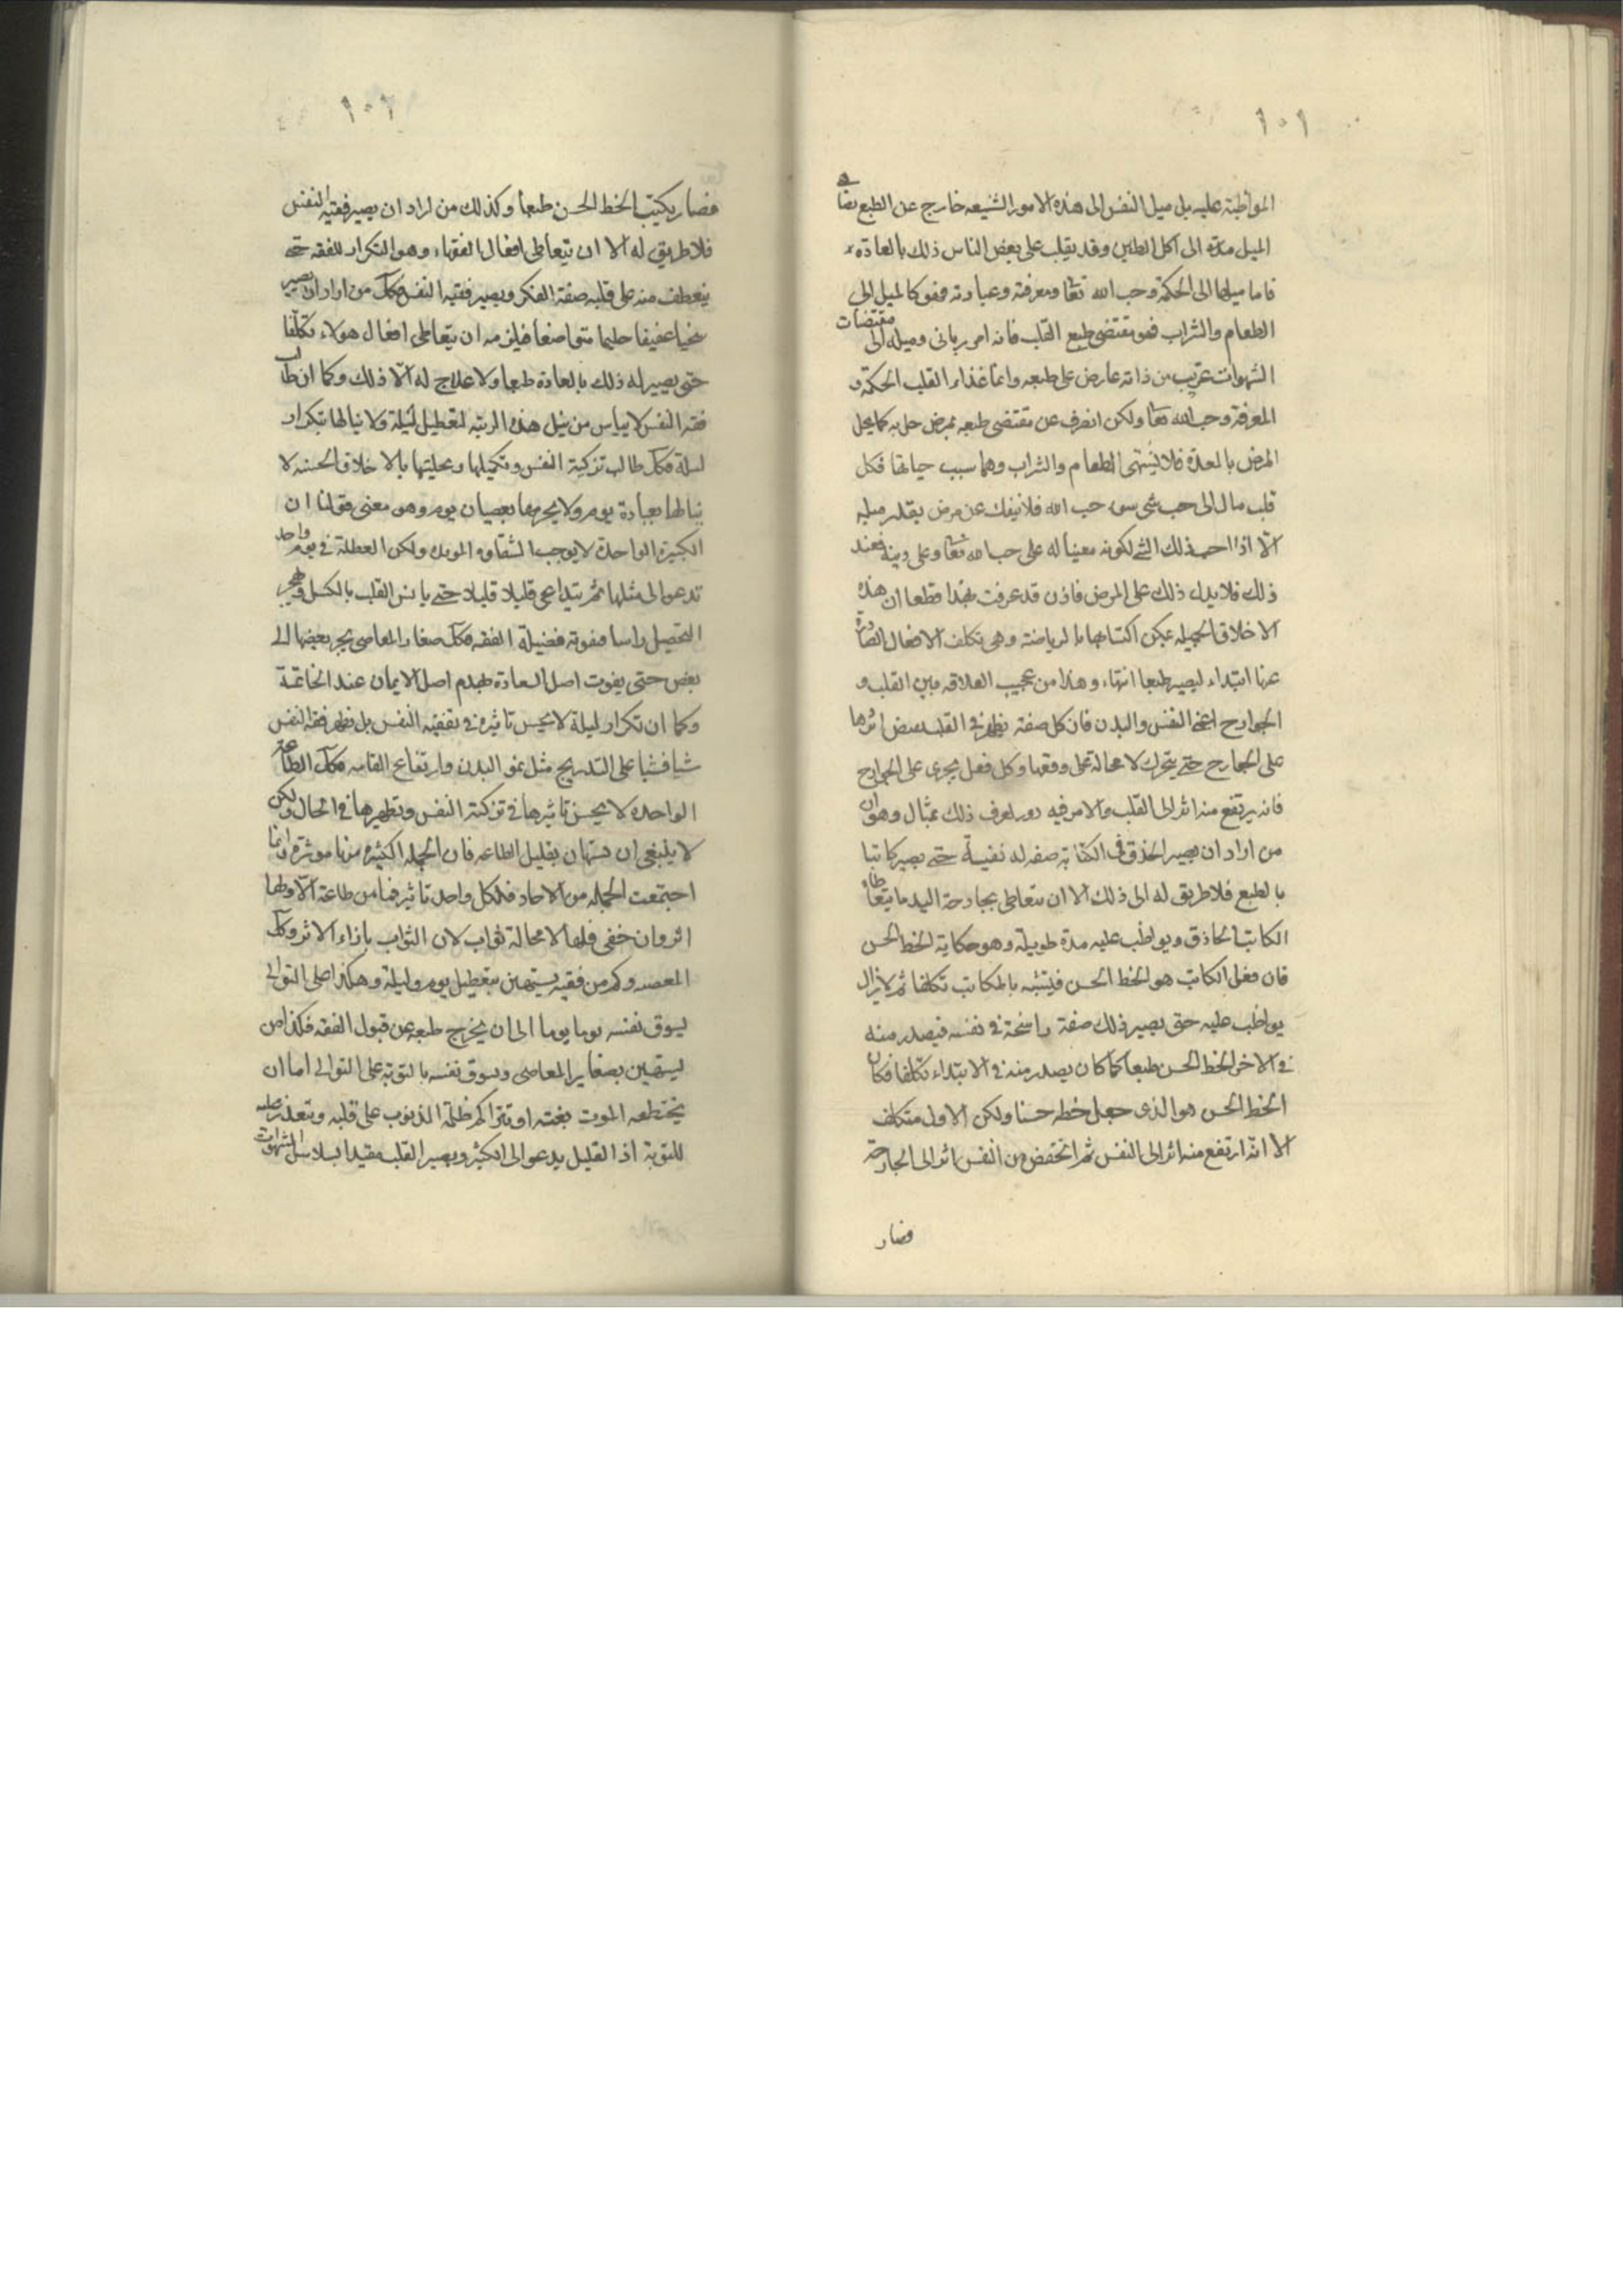 ١٠١
المواظبة عليه بل ميل النفس الى هذه الامور الشنيعه خارج عن الطبع يضاهي
الميل مدة الى اكل الطين وقد يغلب على بعض الناس ذلك بالعادة
فاما ميلها الى الحكمة وحب الله تعا ومعرفته وعبادته فهو كالميل الى
الطعام والشراب فهو مقتضى طبع القلب فانه امر ربانى وميله الى مقتضيات
الشهوات غريب من ذاته عارض على طبعه وانما غذاء القلب الحكمة و
المعرفة وحب الله تعا ولكن انصرف عن مقتضى طبعه بمرض حل به كما يحل
المرض بالمعدة فلا يشتهى الطعام والشراب وهما سبب حياتها فكل
قلب مال الى حب شى سوى حب الله فلا ينفك عن مرض بقدر ميله
الا اذا احب ذلك الشے لكونه معينا له على حب الله تعا وعلى دينه فعند
ذلك فلا يدل ذلك على المرض فاذن قد عرفت بهذا قطعا ان هذه
الاخلاق الجميله يمكن اكتسابها بالرياضة وهى تكلف الافعال الصادرة
عنها ابتداء ليصير طبعا انتهاء وهذا من عجيب العلاقه بين القلب و
الجوارح اعنى النفس والبدن فان كل صفة يظهر فى القلب يفيض اثرها
على الجوارح حتى يتحرك لا محالة على وفقها وكل فعل يجرى على الجوارح
فانه يرتفع منه اثر الى القلب والامر فيه دور يعرف ذلك بمثال وهو ان
من اراد ان يصير الحذق فى الكتابة صفه له نفسية حتى يصير كاتبا
بالطبع فلا طريق له الى ذلك الا ان يتعاطى بجارحة اليد ما يتعاطاه
الكاتب الحاذق ويواظب عليه مدة طويلة وهو حكاية الخط الحسن
فان فعل الكاتب هو الخط الحسن فيتشبه بالكاتب تكلفا ثم لا يزال
يواظب عليه حتى يصير ذلك صفة راسخة فى نفسه فيصدر منه
فى الاخر الخط الحسن طبعا كما كان يصدر منه فى الابتداء تكلفا فكان
الخط الحسن هو الذى جعل خطه حسنا ولكن الاول متكلف
الا انه ارتفع منه اثر الى النفس ثم انخفض من النفس اثر الى الجارحة
فصار
١٠٢
فصار يكتب الخط الحسن طبعا وكذلك من اراد ان يصير فقيه النفس
فلا طريق له الا ان يتعاطى افعال الفقهاء وهو التكرار للفقه حتى
ينعطف منه على قلبه صفة الفكر ويصير فقيه النفس فكك من اراد ان يصير
سخيا عفيفا حليما متواضعا فيلزمه ان يتعاطى افعال هولاء تكلفا
حتى يصير له ذلك بالعادة طبعا ولا علاج له الا ذلك وكما ان طالب
فقه النفس لا ييأس من نيل هذه الرتبه لتعطيل ليلة ولا ينالها بتكرار
ليلة فكك طالب تزكية النفس وتكميلها وتحليتها بالاخلاق الحسنه لا
ينالها بعبادة يوم ولا يحرمها بعصيان يوم وهو معنى قولنا ان
الكبيرة الواحدة لا يوجب الشقاوه الموبده ولكن العطلة فى يوم واحد
تدعو الى مثلها ثم يتداعى قليلا قليلا حتى يانس القلب بالكسل ويهجر
التحصيل راسا فيفوته فضيلة الفقه فكك صغار المعاصى يجر بعضها الى
بعض حتى يفوت اصل السعادة بهدم اصل الايمان عند الخاتمة
وكما ان تكرار ليلة لا يحس تاثيره فى تفقيه النفس بل يظهر فقه النفس
شيا فشيا على التدريج مثل نمو البدن وارتفاع القامه فكك الطاعة
الواحده لا يحس تاثيرها فى تزكية النفس وتطهيرها فى الحال ولكن
لا ينبغى ان يستهان بقليل الطاعه فان الجمله الكثيرة منها موثره وانما
اجتمعت الجمله من الاحاد فلكل واحد تاثير فما من طاعة الا ولها
اثر وان خفى فلها لا محالة ثواب لان الثواب بازاء الاثر وكك
المعصيه وكم من فقيه يستهين بتعطيل يوم وليلة وهكذا على التوالى
يسوق نفسه يوما يوما الى ان يخرج طبعه عن قبول الفقه فكذا من
يستهين بصغاير المعاصى ويسوق نفسه بالتوبة على التوالى اما ان
يختطفه الموت بغتة او تتراكم ظلمة الذنوب على قلبه ويتعذر عليه
للتوبة اذ القليل يدعو الى الكثير ويصير القلب مقيدا بسلاسل الشهوات